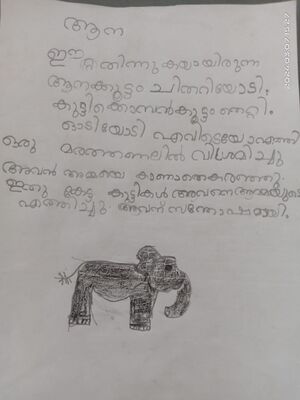 ആന
ഈറ്റ തിന്നുകയായിരുന്ന
ആനക്കൂട്ടം ചിതറിയോടി.
കുട്ടിക്കൊമ്പൻകൂട്ടം തെറ്റി.
ഓടിയോടി എവിടെയോഎത്തി
ഒരു മരത്തണലിൽ വിശ്രമിച്ചു
അവൻ അമ്മയെ കാണാതെകരഞ്ഞു.
ഇതു കേട്ട കുട്ടികൾ അവനെഅമ്മയുടെ
എത്തിച്ചു. അവന് സന്തോഷമായി.
2024/03/07 15:27